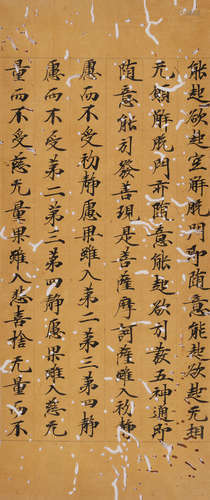 能起欲起空解脫門即隨意能起欲起无相
无願解脫門亦隨意能起欲引發五神通即
隨意能引發善現是菩薩摩訶薩雖入初靜
慮而不受初靜慮果雖入第二第三第四靜
慮而不受第二第三第四靜慮果雖入慈无
量而不受慈无量果雖入悲喜捨无量而不